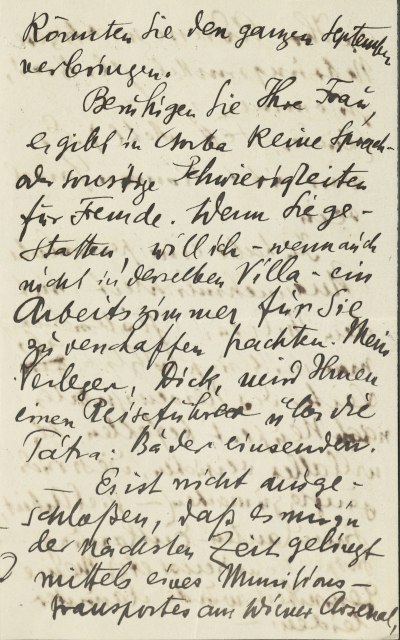 Könnten Sie den ganzen September
verbringen.
Beruhigen Sie Ihre Frau,
es gibt in Csorba keine Sprach-
oder sonstige Schwierigkeiten
für Fremde. Wenn Sie ge-
statten, will ich – wenn auch
nicht in derselben Villa – ein
Arbeitszimmer für Sie
zu verschaffen trachten. Mein
Verleger, Dick, wird Ihnen
einen Reiseführer über die
Tátra-Bäder einsenden.
Es ist nicht ausge-
schloßen, daß es mir in
der nächsten Zeit gelingt
mittels eines Munitions-
transportes am Wiener Arsenal,